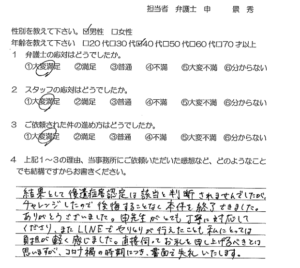 担当者 弁護士 申 景秀
性別を教えて下さい。☑男性 □女性
年齢を教えて下さい □20代□30代☑40代□50代□60代□70才以上
1 弁護士の応対はどうでしたか。
①大変満足 ②満足 ③普通 ④不満 ⑤大変不満 ⑥分からない
2 スタッフの応対はどうでしたか。
①大変満足 ②満足 ③普通 ④不満 ⑤大変不満 ⑥分からない
3 ご依頼された件の進め方はどうでしたか。
①大変満足 ②満足 ③普通 ④不満 ⑤大変不満 ⑥分からない
4 上記1~3の理由、当事務所にご依頼いただいた感想など、どのようなこと
でも結構ですからお書きください。
結果として後遺症認定は該当と判断されませんでしたが、
チャレンジしたので後悔することなく本件を終了できました。
ありがとうございました。申先生がとても丁寧に対応して
くださり、またLINEでやりとりが行えたことも、私にとっては
負担が軽く感じました。直接伺ってお礼を申し上げるべきとは
思いますが、コロナ禍の時期につき、書面で失礼いたします。